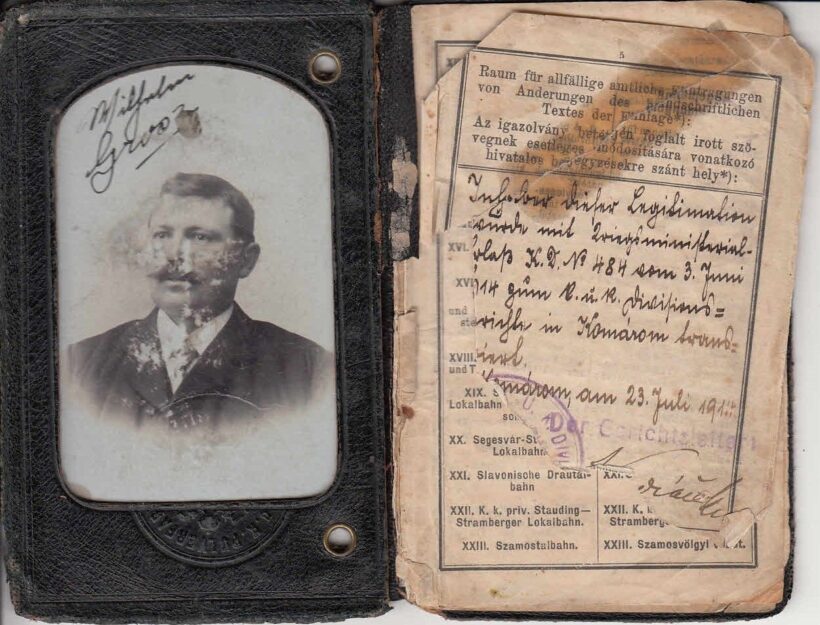 Wilhelm
Gross
5
Raum für allfällige amtliche Eintragungen
von Änderungen des handschriftlichen
Textes der Einlage*):
Az igazolvány betétjén foglalt irott szö-
vegnek esetleges módosítására vonatkozó
hivatalos bejegyzésekre szánt hely*):
Inhaber dieser Legitimation
wurde mit Kriegsministerial-
erlaß K.D. № 484 vom 3. Juni
914 zum k. u. k. Divisions=
richte in Komárom trans=
feriert.
Komárom, am 23. Juli 191
Der Gerichtsleiter:
XVI.
XVI
und
XVIII.
und T
XIX. S
Lokalbahn
XX. Segesvár-S
Lokalbahn
XXI. Slavonische Drautal-
bahn
XXII. K. k. priv. Stauding—
Stramberger Lokalbahn.
XXIII. Szamostalbahn.
XXI.
XXII. K. k
Stramberg
XXIII. Szamosvölgyi